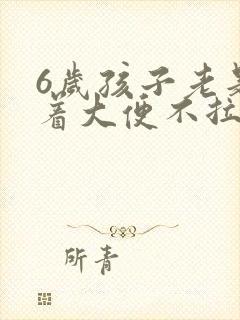 6岁孩子老是
着大便不拉
所青